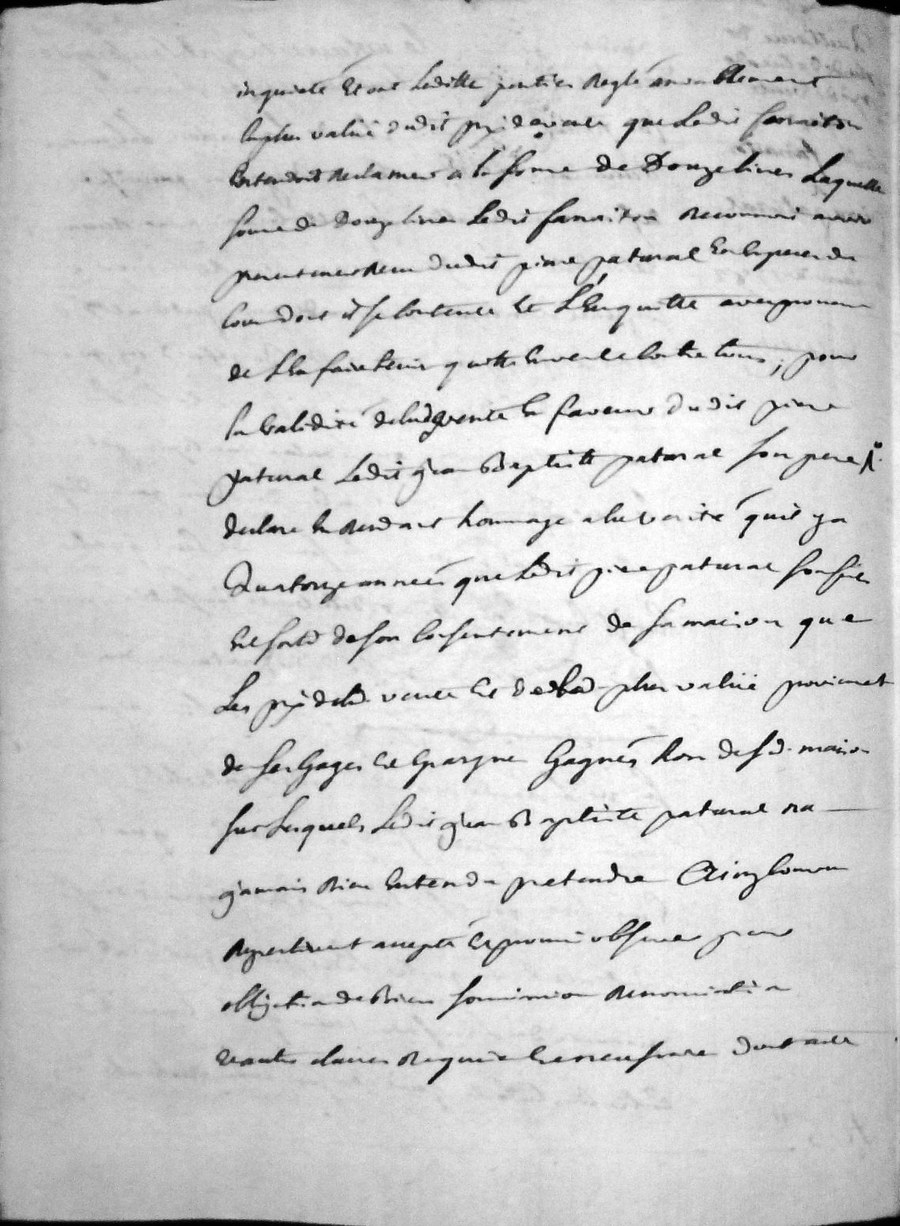 inquieté et ont lesditte parties reglé amiablement
la plus valüe dudit prix de vente que ledit farraiton
entendoit reclamer a la some de Douze livres Laquelle
some de douze livres ledit farraiton reconnoit avoir
presentement receu dudit pierre patural en especes du
cours dont il se contente et l'en quitte avec promesse
de l'en faire tenir quitte envers et contre tous; pour
la validité de lad vente en faveur dudit pierre
patural ledit jean Baptiste patural son pere
declare en rendant hommage a la verité qu'il y a
Quatorze années que ledit pierre patural son fils
est sorti de son consentement de sa maison que
Les prix de lad vente et de lad plus valüe provienent
de ses Gages et Epargne Gagnés hors de sad maison
sur lesquels ledit jean Baptiste patural na
jamais rien entendu pretendre Ainsy convenu
respectivement accepté et promis observer pour
obligation de Biens soumission renonciation
et autres clauses requises et necessaire dont acte